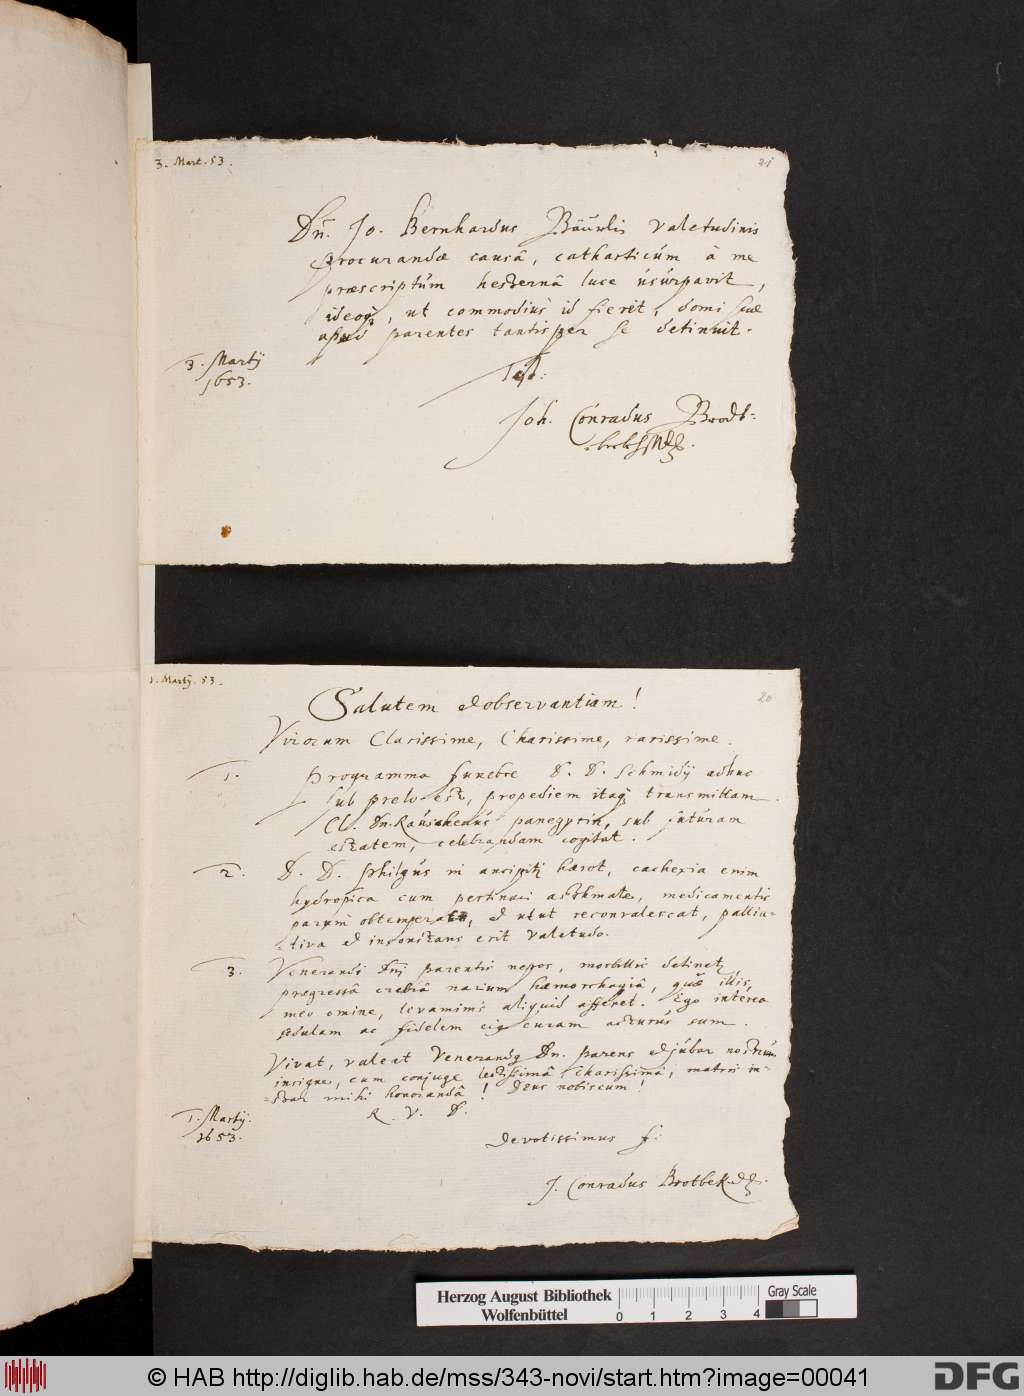 3. Mart. 53.
21
Dn. Jo. Bernhardus Bäuerlin valetudinis
procurandae causâ, catharticùm à me
praescriptùm hesternâ luce ùsùrpavit,
ideoq, ut commodiùs id fieret, domi suae
apud parentes tantisper se detinuit.
3. Martij
1653.
Test:
Joh. Conradus Brodt-
1. Martij. 53.
20
Salutem et observantiam!
Virorum Clarissime, Charissime, rarissime.
1. Programma funebre D. D. Schmidij adhuc
sub prelo est, propediem itaq transmittam.
Cl. Dn. panegyrin, sub futùram
aestatem, celebrandam cogitat.
2. D. D. in ancipiti haeret, cachexia enim
hydropica cum pertinaci asthmate, medicamentis
parùm obtemperat, et ut ut reconvalescat, pallia-
tiva et inconstans erit valetudo.
3. Venerandi Dnj parentis nepos, morbillis detinetur,
praegressâ crebrâ narium haemorrhagiâ, quae illis,
meo omine, levaminis aliquid afferet. Ego interea
sedulam ac fidelem eius curam acturùs sum.
Vivat, valeat Venerandus Dn. parens et jùbar nostrùm
insigne, cum conjuge lectissimâ charissimâ, matris in-
star mihi honorandâ! Deus nobiscum!
R. V. D.
1. Martij.
1653.
devotissimus f.
J. Conradus Brotbek. D.
Herzog August Bibliothek
Wolfenbüttel
0 1 2 3 4
Gray Scale
© HAB http://diglib.hab.de/mss/343-novi/start.htm?image=00041
DFG